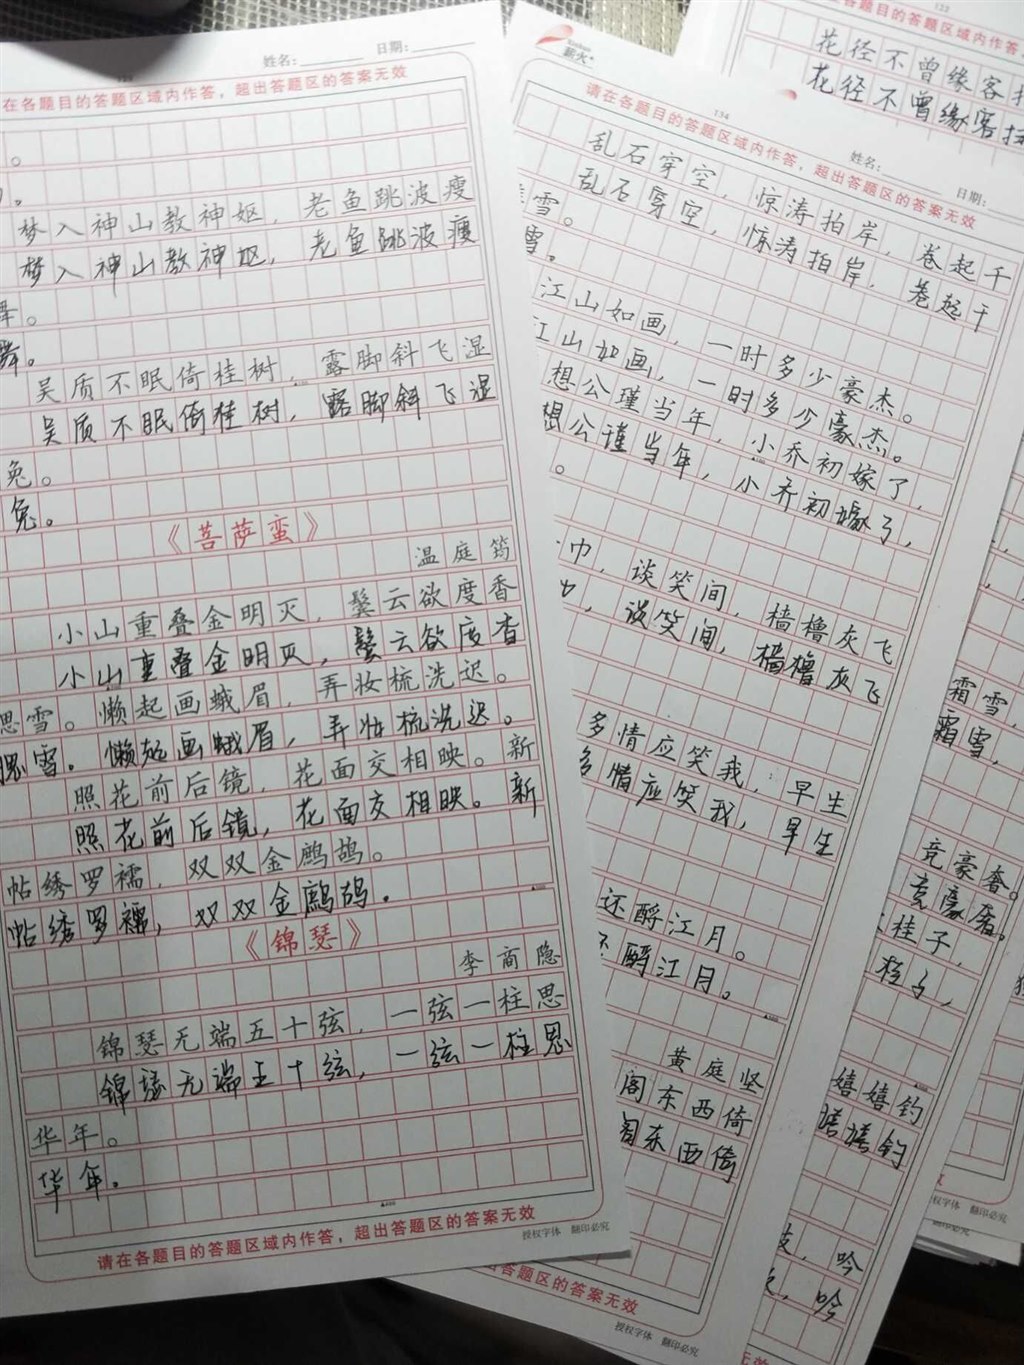 姓名:
日期:
在各题目的答题区域内作答，超出答题区的答案无效
。
梦入神山教神妪，老鱼跳波瘦
梦入神山教神妪，老鱼跳波瘦
舞。
舞。
吴质不眠倚桂树，露脚斜飞湿
吴质不眠倚桂树，露脚斜飞湿
兔。
兔。
《菩萨蛮》
温庭筠
小山重叠金明灭，鬓云欲度香
小山重叠金明灭，鬓云欲度香
腮雪。懒起画蛾眉，弄妆梳洗迟。
腮雪。懒起画蛾眉，弄妆梳洗迟。
照花前后镜，花面交相映。新
照花前后镜，花面交相映。新
帖绣罗襦，双双金鹧鸪。
帖绣罗襦，双双金鹧鸪。
《锦瑟》
李商隐
锦瑟无端五十弦，一弦一柱思
锦瑟无端五十弦，一弦一柱思
华年。
华年。
请在各题目的答题区域内作答，超出答题区的答案无效
授权字体 翻印必究
薪火
134
姓名:
日期:
请在各题目的答题区域内作答，超出答题区的答案无效
乱石穿空，惊涛拍岸，卷起千
乱石穿空，惊涛拍岸，卷起千
雪。
雪。
江山如画，一时多少豪杰。
江山如画，一时多少豪杰。
想公瑾当年，小乔初嫁了，
想公瑾当年，小乔初嫁了，
。
巾，谈笑间，樯橹灰飞
，谈笑间，樯橹灰飞
多情应笑我，早生
多情应笑我，早生
还酹江月。
还酹江月。
黄庭坚
阁东西倚
阁东西倚
出答题区的答案无效
授权字体 翻印必究
133
各题目的答题区域内作答
花径不曾缘客扫
花径不曾缘客扫
霜雪，
霜雪，
竞豪奢。
竞豪奢。
桂子，
桂子，
嬉嬉钓
嬉嬉钓
，吟
，吟
授权字体 翻印必究
翻印必究